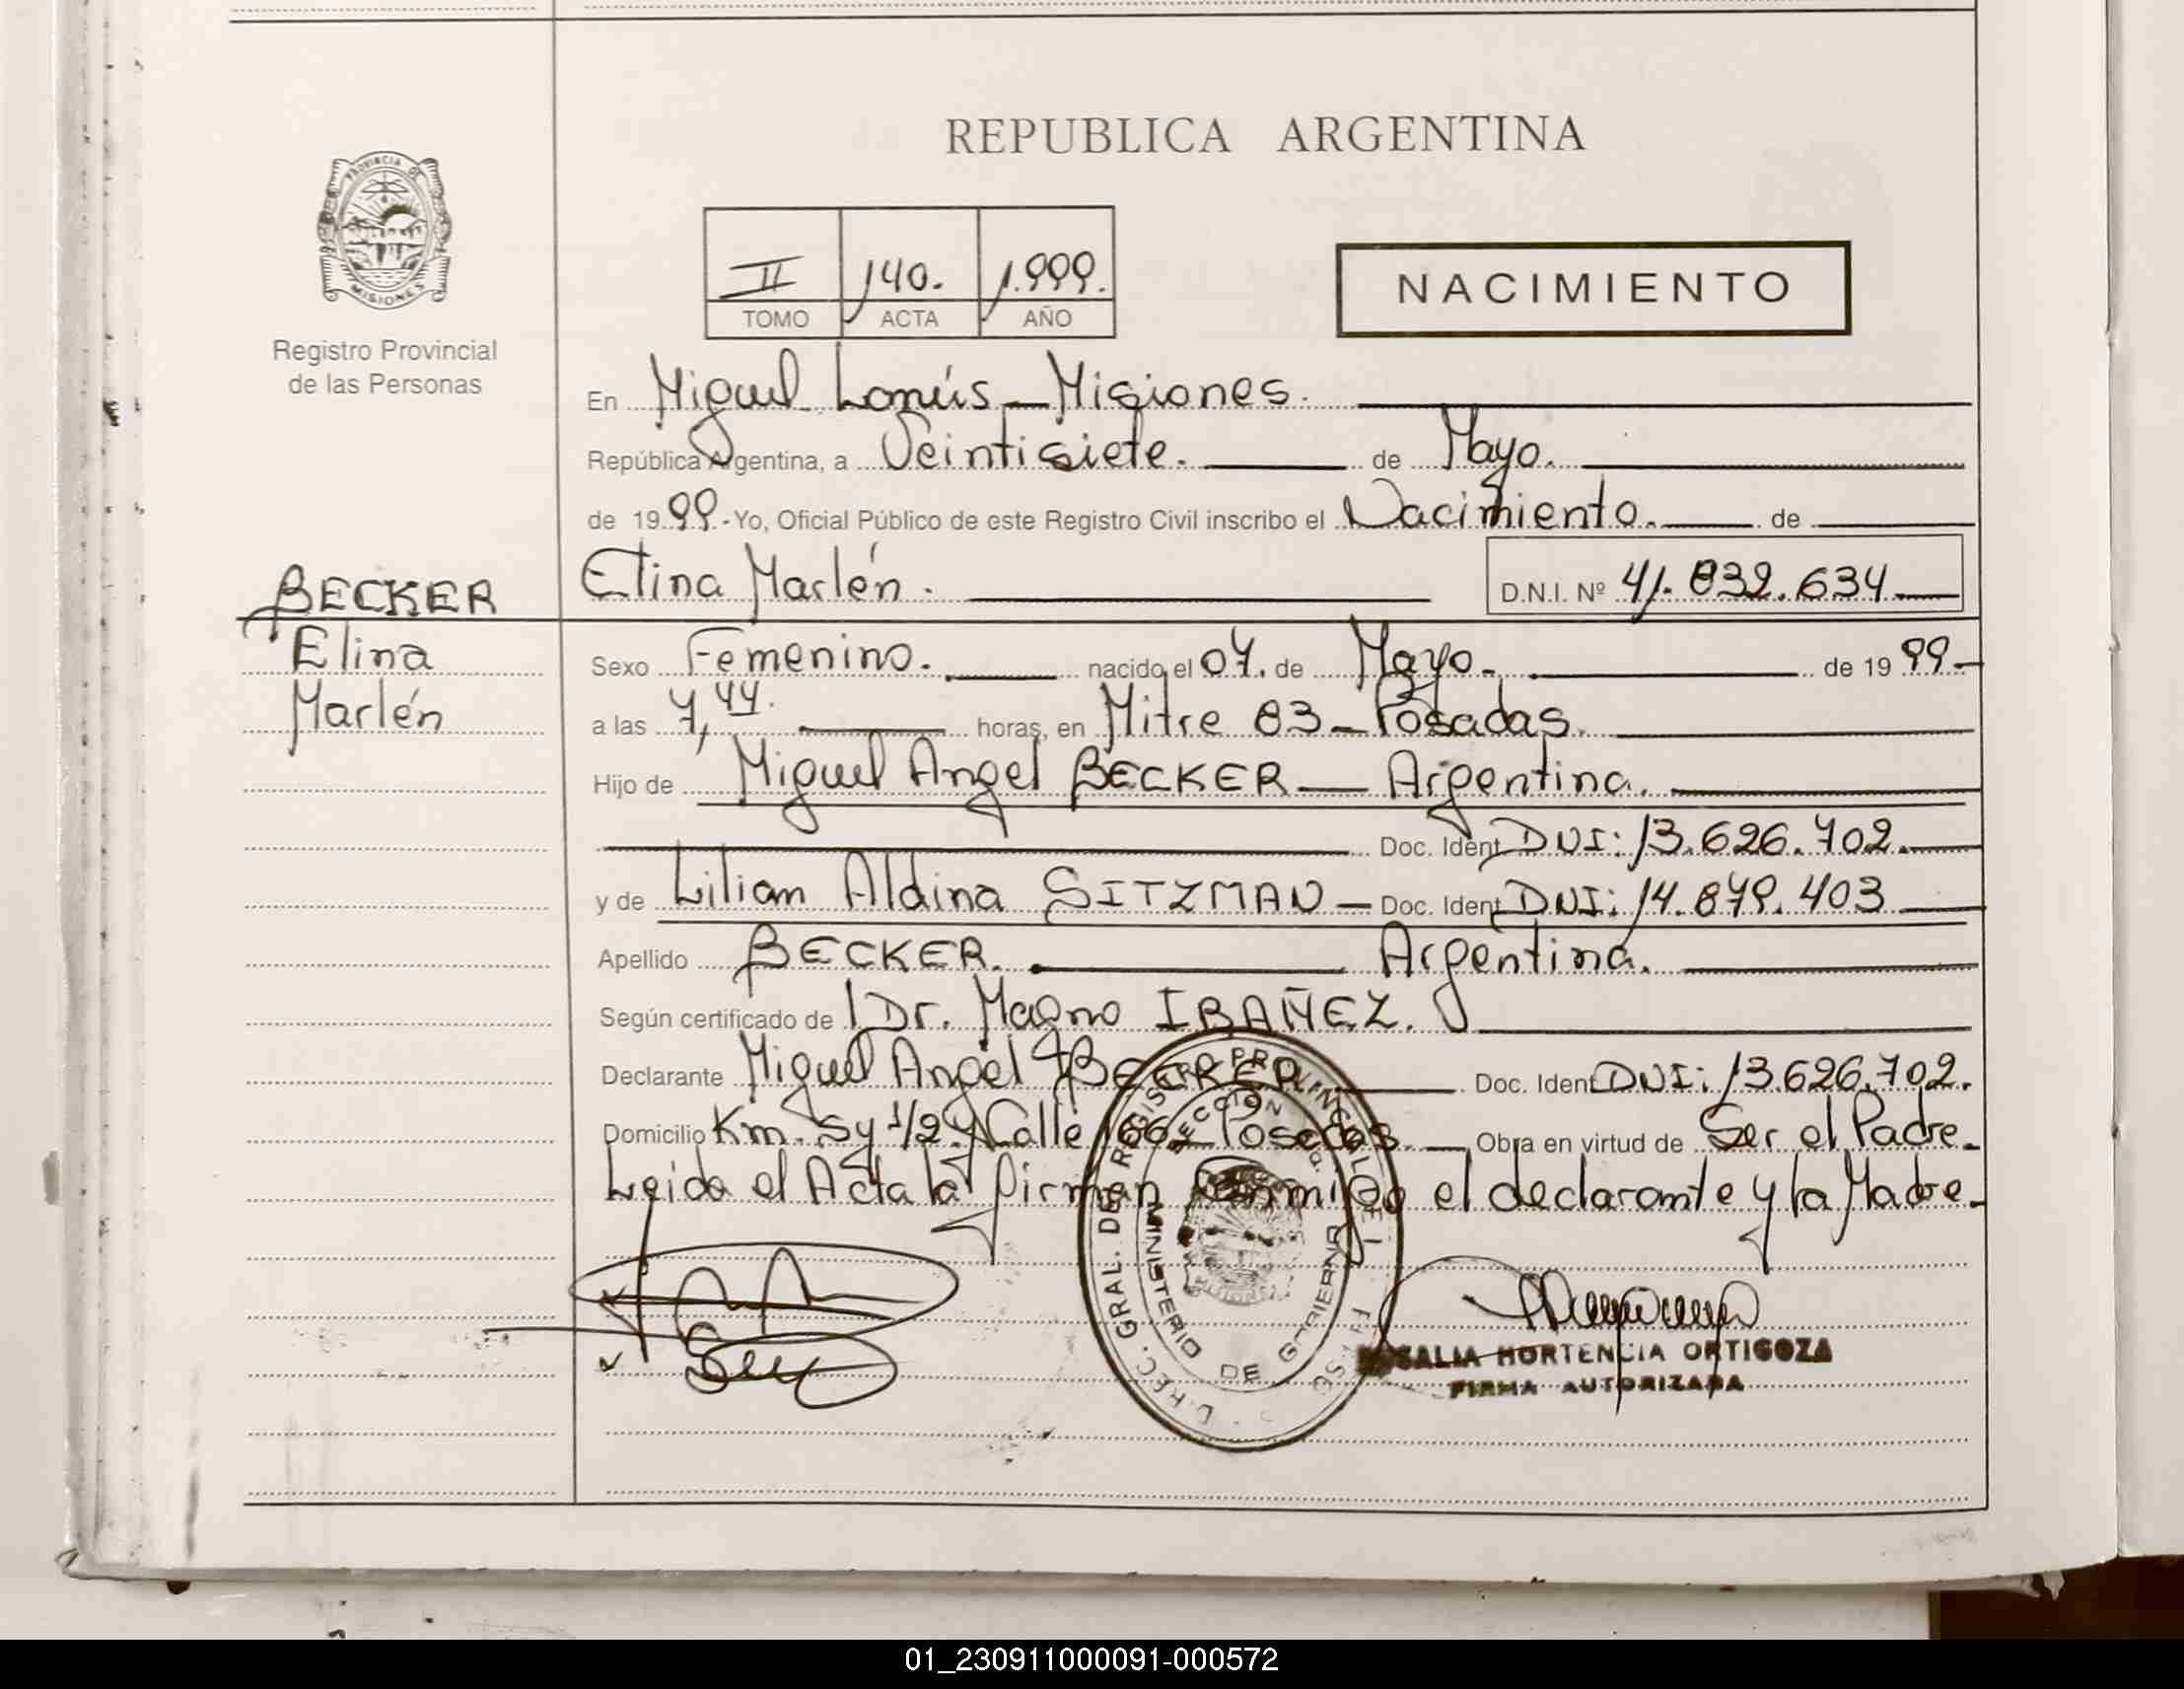 REPUBLICA ARGENTINA
PROVINCIA DE
MISIONES
Registro Provincial
de las Personas
II 140. 1.999.
TOMO ACTA AÑO
NACIMIENTO
En Miguel Lanús - Misiones.
República Argentina, a Veintisiete. de Mayo.
de 1999.-Yo, Oficial Público de este Registro Civil inscribo el Nacimiento. de
BECKER
Elina Marlén. D.N.I. Nº 41.832.634
Elina
Marlén
Sexo Femenino. nacido el 07. de Mayo. de 1999.-
a las 7,44. horas, en Mitre 83 - Posadas.
Hijo de Miguel Angel BECKER - Argentina.
Doc. Ident DNI: 13.626.702.
y de Lilian Aldina SITZMAN - Doc. Ident DNI: 14.879.403
Apellido BECKER. Argentina.
Según certificado de Dr. Magno IBAÑEZ.
Declarante Miguel Angel BECKER Doc. Ident DNI: 13.626.702.
Domicilio Km. 5 y 1/2 y Calle 66 - Posadas. Obra en virtud de Ser el Padre.
Leida el Acta la firman conmigo el declarante y la Madre.
DIREC. GRAL. DEL REGISTRO PROVINCIAL DE LAS PERSONAS
MINISTERIO DE GOBIERNO
ROSALIA HORTENCIA ORTIGOZA
FIRMA AUTORIZADA
01_230911000091-000572